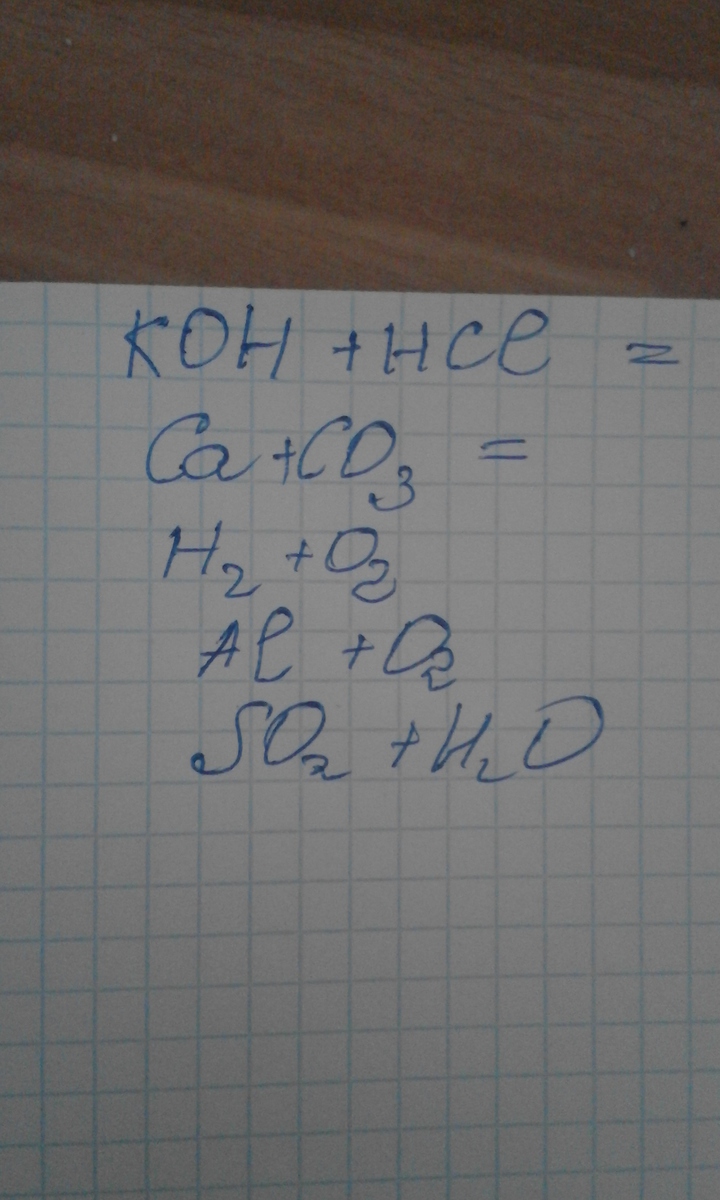 KOH + HCl =
Ca + CO₃ =
H₂ + O₂
Al + O₂
SO₂ + H₂O